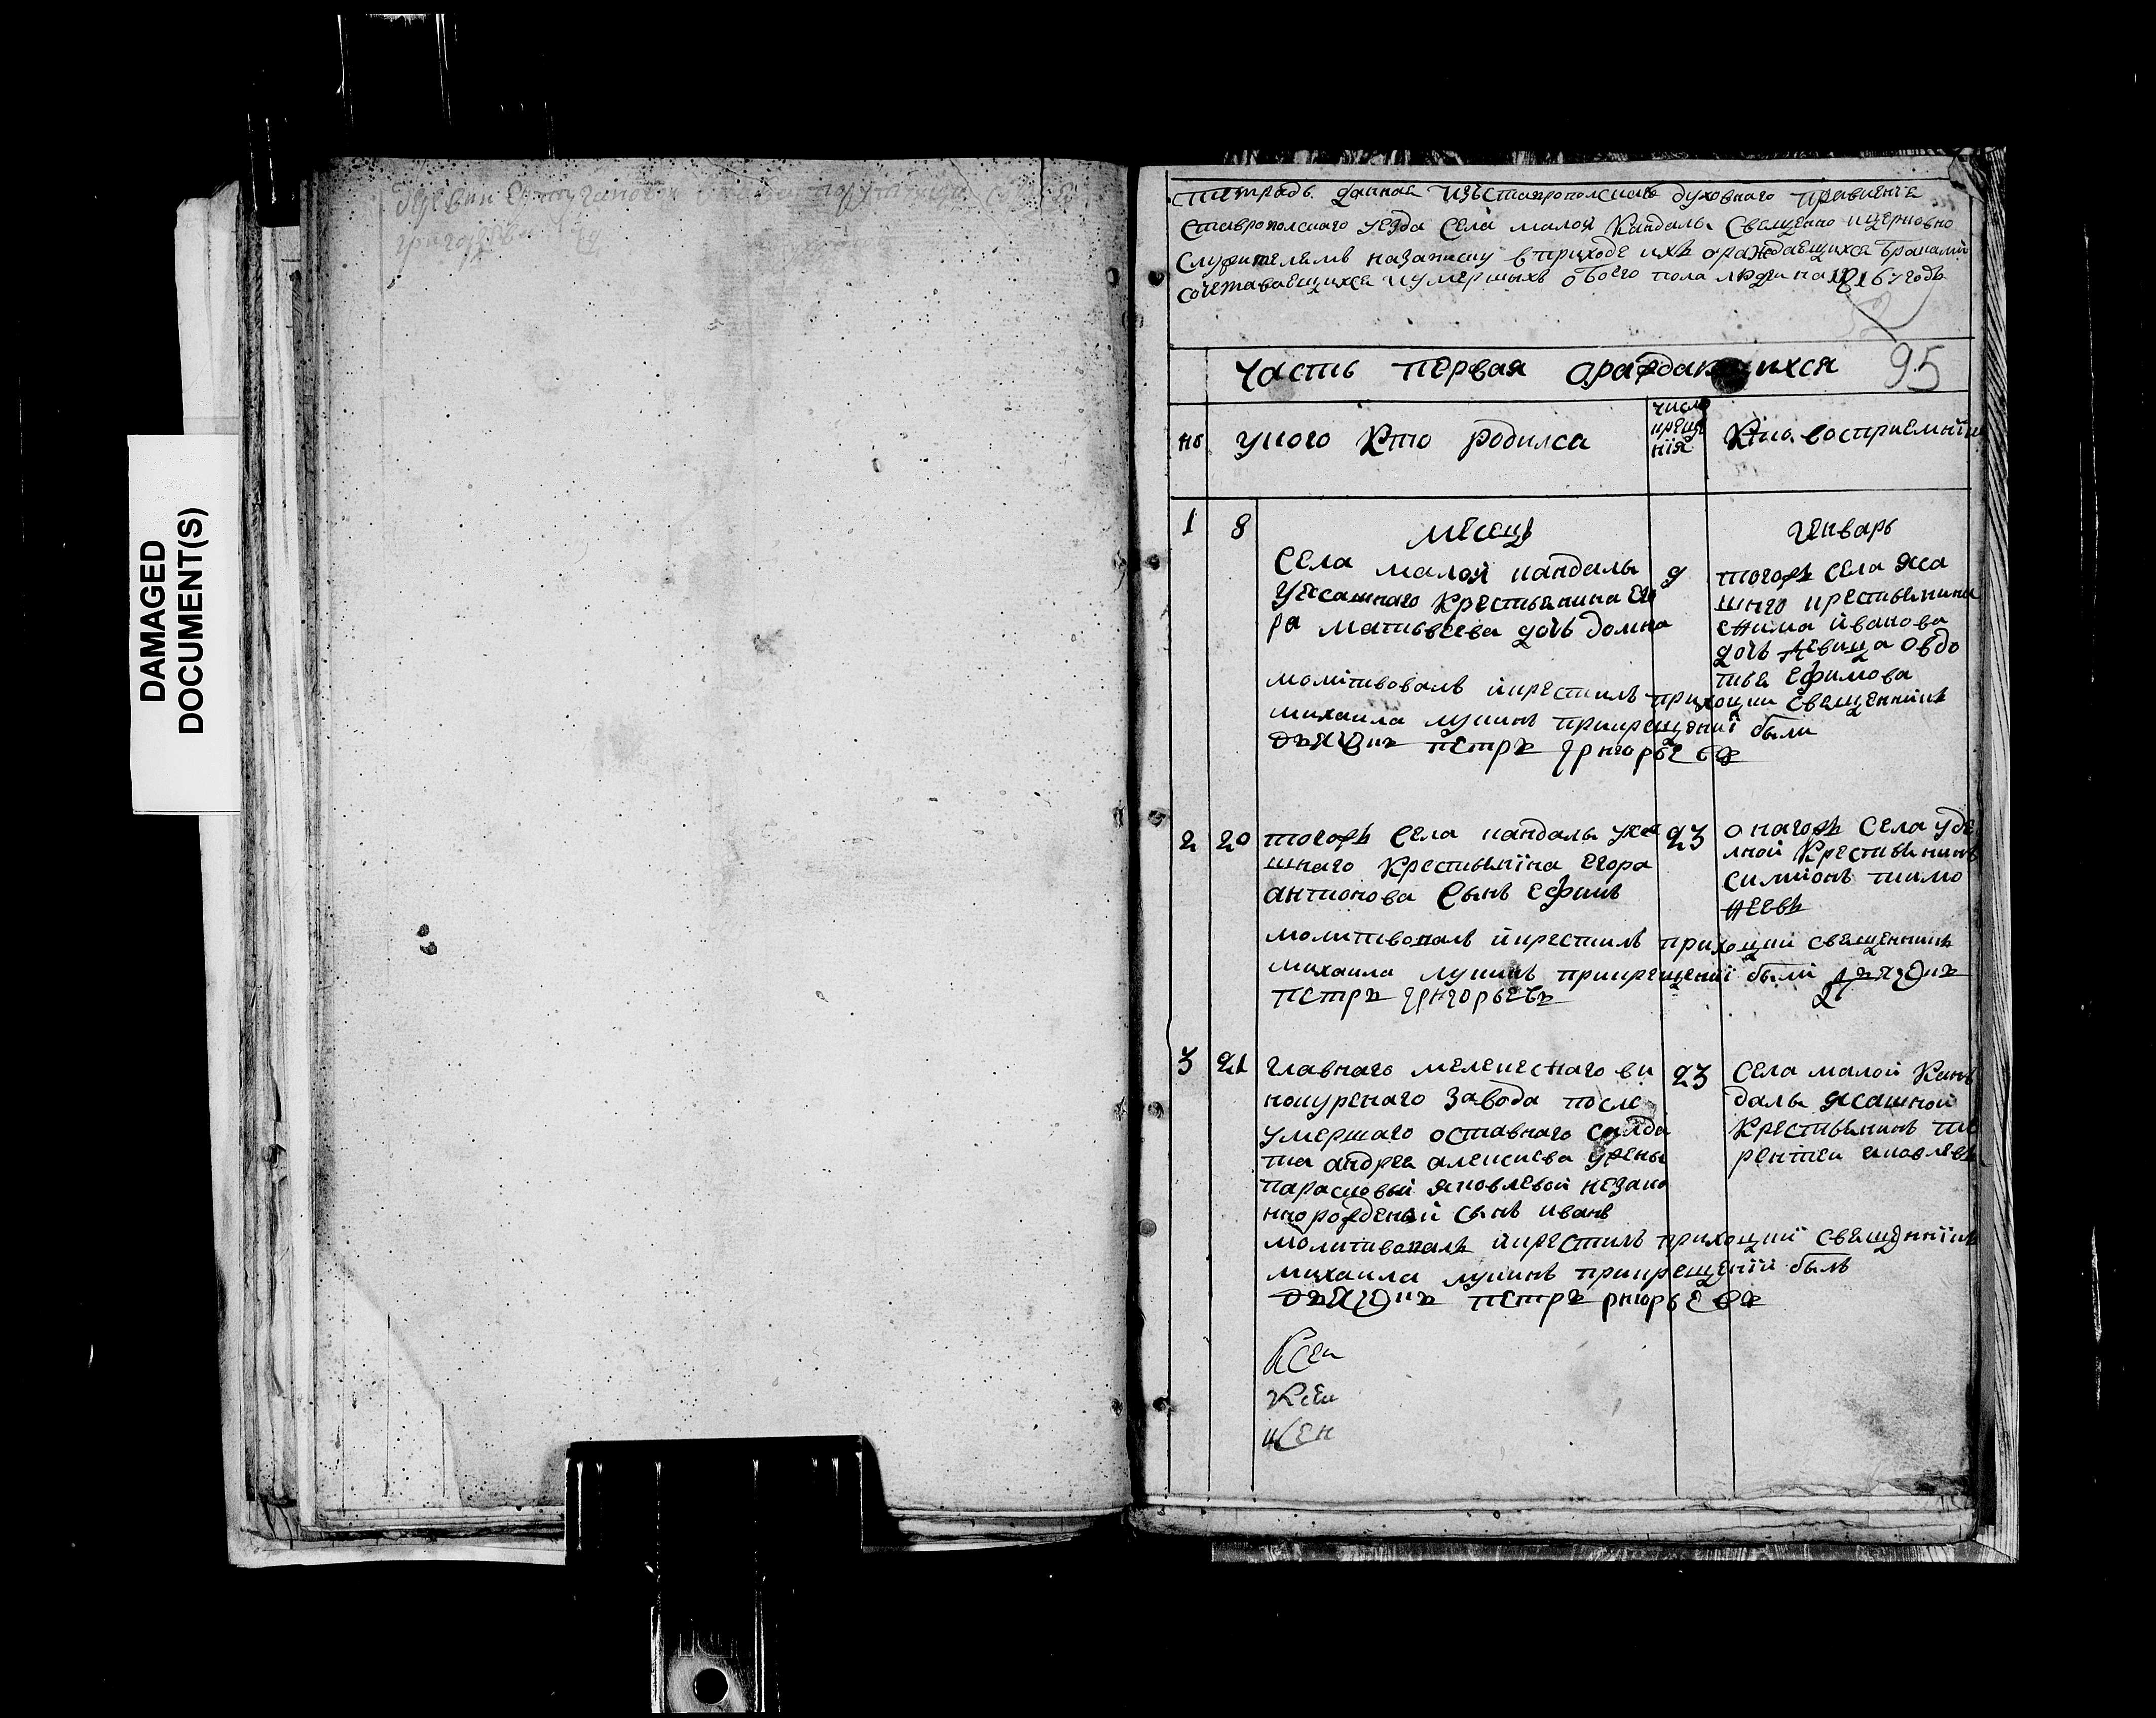 DAMAGED
DOCUMENT(S)
тетрадь даннае изъ Ставрополскаго духовнаго правленïе
Ставрополскаго уезда села малой Кандалы Священно ицерковно
служителемъ назаписку вприходе ихъ ораждаещихся браками
сочетаваещихся иумершыхъ обоего пола людеи на 1816 годъ
95
Часть первая ораждающихся
но
укого Кто родилса
число
креще
нïя
Кто восприемнïк
1 8 месецъ Генварь
Села малой кандалы
Уясашнаго Крестьянина Его
ра матьвеева дочь домна
9
тогожъ села яса
шнго крестьянина
ефима иванова
дочь девица овдо
тья Ефимова
молитвовалъ икрестилъ приходции священникъ
михаила лукинъ прикрещенïï были
дьячокъ петръ григорьевъ
2 20 тогожъ Села кандалы уяса
шнаго Крестьянïна Егора
антонова сынъ Ефимъ
23
онагожъ Села уде
лной Крестьянинъ
симионъ тимо
феевъ
молитвовалъ икрестилъ приходции священникъ
михаила лукинъ прикрещенïï были дьячокъ
петръ григорьевъ
3 21 главнаго мелекеснаго ви
нокуренаго завода после
умершаго оставнаго салда
та андрея алексиева жены
парасковьи яковлевой незако
ннорожденый сынъ иванъ
23
Села малой Кань
далы ясашной
Крестьянинъ те
рентеи яковлевъ
молитвовалъ икрестилъ приходции священнïкъ
михаила лукинъ прикрещенïи былъ
дьячокъ петръ григорьевъ